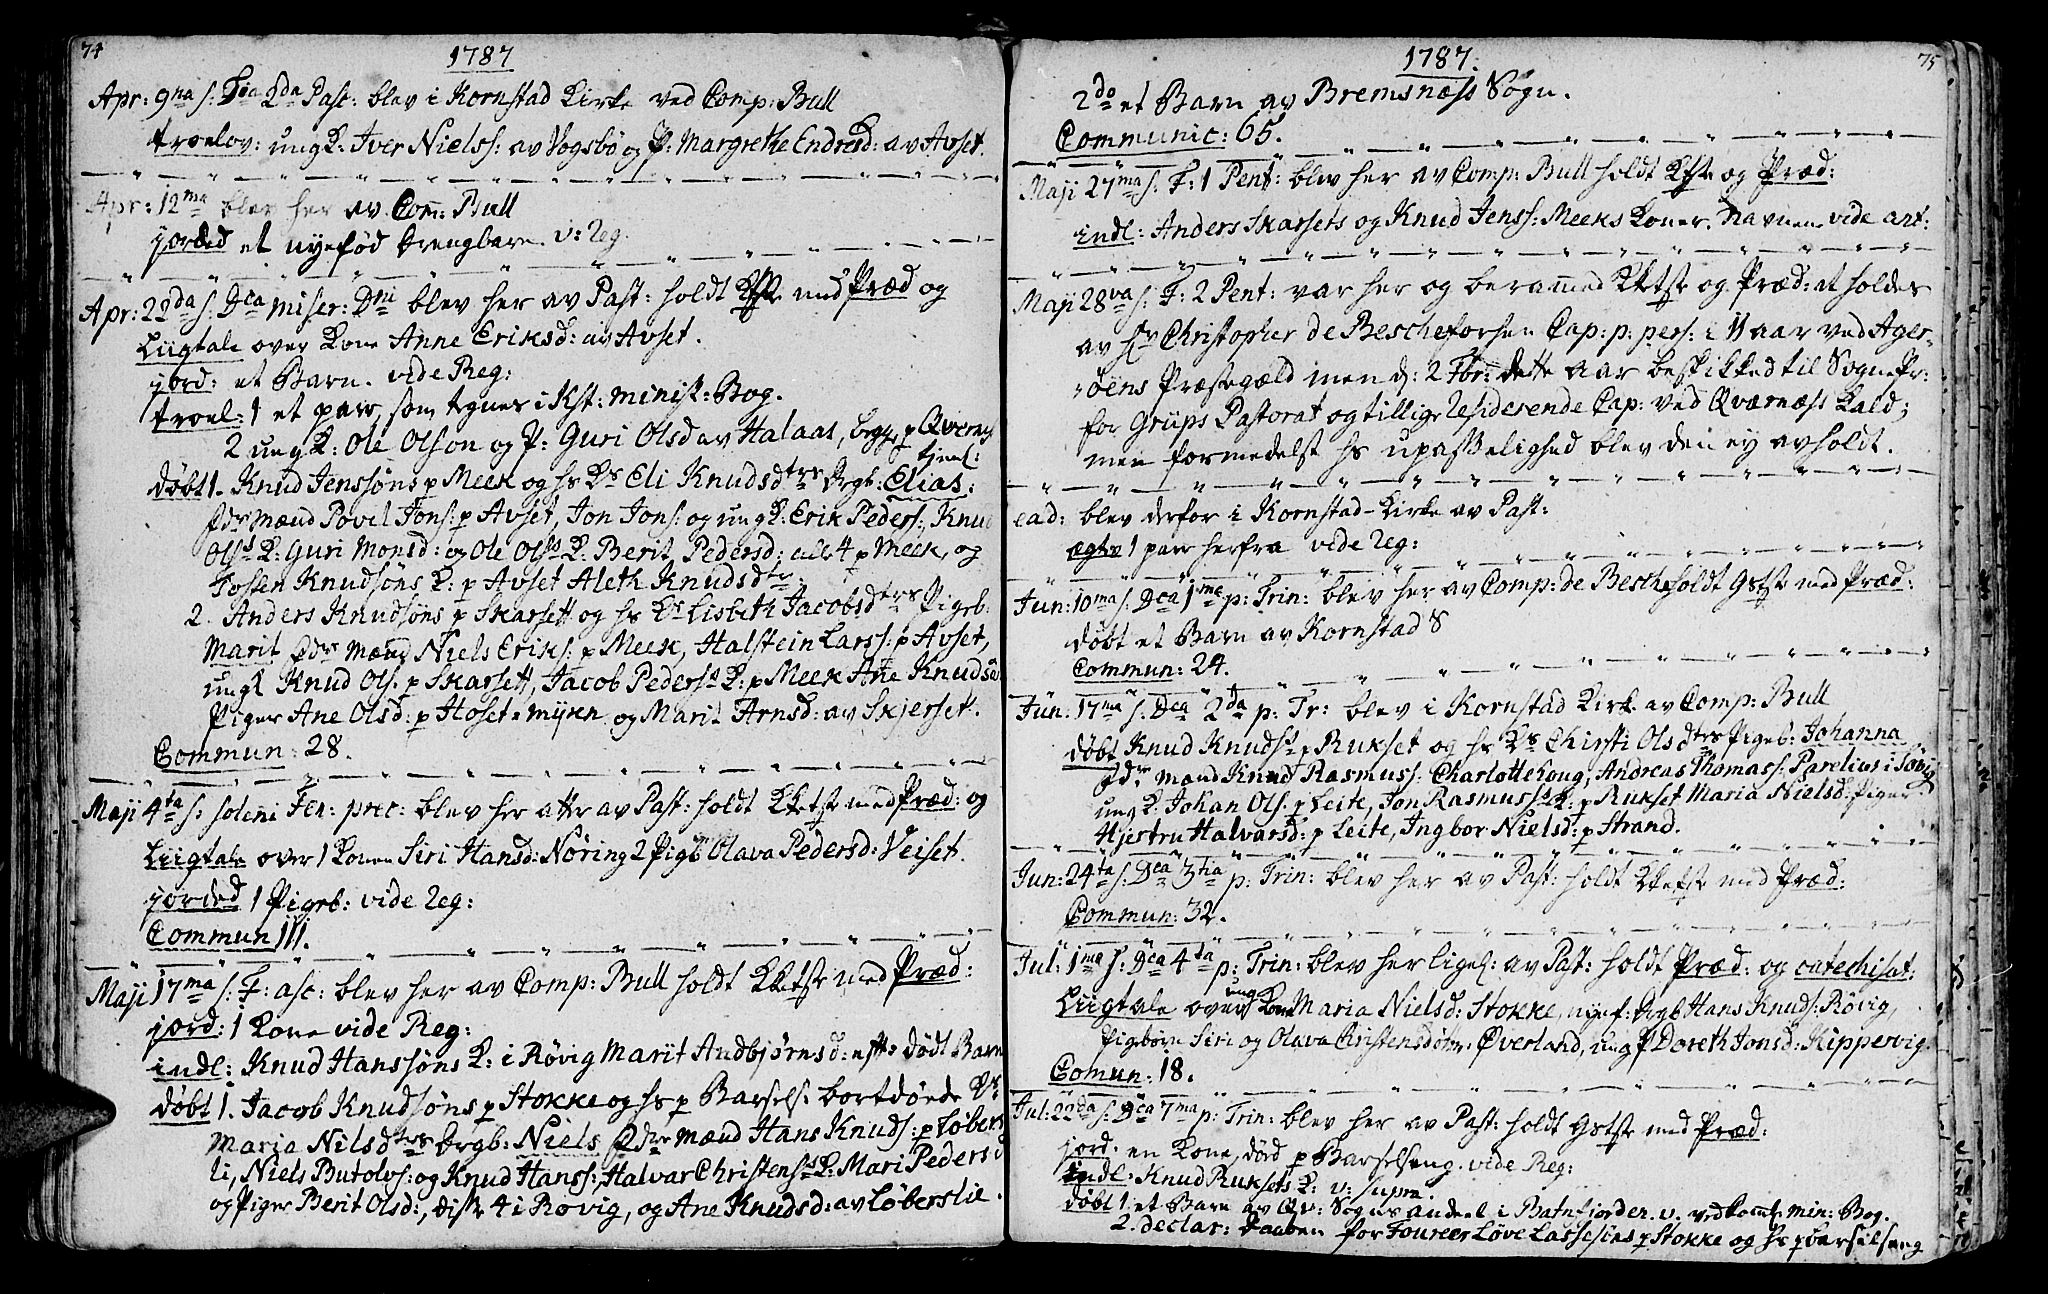 74
1787
Apr: 9na s: Fia 2da Pasc: blev i Kornstad Kirke ved Comp: Bull
troelov: ungK: Iver Niels: av Vogsbø og P: Margrethe Endresd: av Avset.
Apr: 12ma blev her av Com: Bull
jorded et nyefød drengbarn. v: Reg.
Apr: 22da s: Dca Miser: Dni blev her av Past: holdt med Præd og
Liigtale over Kone Anne Eriksd: av Avset.
jord: et Barn. vide Reg:
troel: 1 et parr, som tegnes i Kst: minist: Bog.
2 ungK: Ole Olson og P: Guri Olsd av Halaas, begge p Qvernes
tjenes:
døbt 1. Knud Jenssöns p Meek og hs Ks Eli Knudsdtrs drgb: Elias:
fdr mænd Povel Jons: p Avset, Jon Jons: og ungK: Erik Peders:, Knud
Olss K: Guri Monsd: og Ole Olss K: Berit Pedersd: alle 4 p Meek, og
Tosten Knudsöns K: p Avset Aleth Knudsdtr.
2. Anders Knudsöns p Skarsett og hs Ks Lisbeth Jacobsdtrs Pigeb:
Marit fdr mænd Niels Eriks: p Meek, Halstein Lars: p Avset,
ungK Knud Ols: p Skarsett, Jacob Peders K: p Meek Ane Knudsd
Piger Ane Olsd: p Hoset-myrn og Marit Arnsd: av Skjerset.
Commun: 28.
Maji 4ta s: solenni Fer: prec: blev her atter av Past: holdt med Præd: og
Liigtale over 1 Konen Siri Hansd: Nöring 2 Pigb Olava Pedersd: Veiset.
jorded 1 Pigeb: vide Reg:
Commun 111.
Maji 17ma s: F: asc: blev her av Comp: Bull holdt med Præd:
jord: 1 Kone vide Reg:
indl: Knud Hanssöns K: i Rövig Marit Andbjörnsd: efter dödt Barn
døbt 1. Jacob Knudsöns p Stokke og hs p Barsels: bortdöede Ks
Maria Nilsdtrs drgb: Niels fdr mænd Hans Knuds: p Löbers
li, Niels Butolvs: og Knud Hanss:, Halvar Christens K: Mari Pedersd
og Piger Berit Olsd:, disse 4 i Rövig, og Ane Knudsd: av Löberslie.
1787.
75
2do et Barn av Bremsnæss Sogn.
Communic: 65.
Maji 27ma s: F: 1 Pent: blev her av Comp: Bull holdt og Præd:
indl: Anders Skarsets og Knud Jenss: Meeks Koner. Navnene vide ant:
Maji 28va s: F: 2 Pent: var her og berammed og Præd: at holdes
av Hr Christopher de Besche forhen Cap: p: pers: i 11 aar ved Ager-
öens Præstegæld men d: 2 Fbr: dette aar beskikked til SognePr:
for Grüps Pastorat og tillige residerende Cap: ved Qværnæss Kald;
men formedelst hs upasselighed blev den ey avholdt.
ead: blev derfor i Kornstad-Kirke av Past:
ægtv 1 parr herfra vide Reg:
Jun: 10ma s: Dca 1ma p: Trin: blev her av Comp: de Besche holdt Gstste med Præd:
døbt et Barn av Kornstad S
Commun: 24.
Jun: 17ma s: Dca 2da p: Tr: blev i Kornstad Kirke av Comp: Bull
døbt Knud Knuds p Rukset og hs Ks Chirsti Olsdtrs Pigeb: Johanna
fdr mænd Knud Rasmuss: Charlottehoug, Andreas Thomass: Parelius i Tövig
ungK: Johan Ols: p Leite, Jon Rasmuss K: p Rukset Maria Nielsd: Piger
Hjestru Halvarsd: p Leite, Ingbor Nielsd: p Strand.
Jun: 24ta s: Dca 3tia p: Trin: blev her av Past: holdt med Præd:
Commun: 32.
Jul: 1ma s: Dca 4ta p: Trin: blev her liges: av Past: holdt Præd: og catechisat:
Liigtale over ung Kone Maria Nielsd: Stokke, nyef: drgb Hans Knuds: Rövig,
Pigbörn Siri og Olava Christensdöttre Överland, ung P Doreth Jonsd: Kippervig.
Comun: 18.
Jul: 22da s: Dca 7ma p: Trin: blev her av Past: holdt Gstste med Præd:
jord: en Kone, död p Barselseng. vide Reg:
indl: Knud Ruksets K: v: supra.
døbt 1. et Barn av Qv: Sogns andeel i Batnfjorden. v. ved min: Bog.
2. declar: Dauben for Foureer Löve Lassesöns p Stokke og hs p barselseng